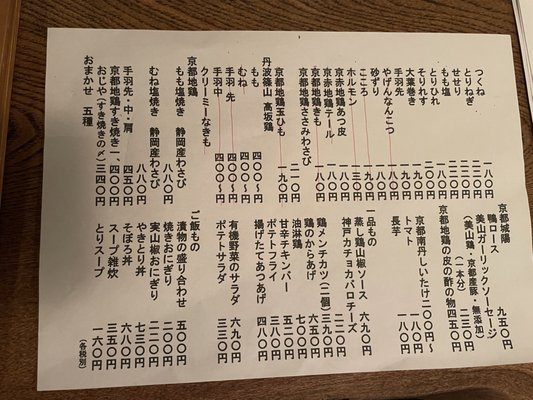 つくね 一八〇
とりねぎ 二二〇
せせり 二二〇
もも塩 二二〇
とりひれ 二〇〇
そりれす 一八〇
大葉巻き 一九〇
手羽先 一八〇
やげんなんこつ 一八〇
砂ずり 一八〇
こころ 一九〇
ホルモン 一三〇
京赤地鶏あつ皮 一八〇
京赤地鶏テール 一八〇
京都地鶏きも 一八〇
京都地鶏ささみわさび 二一〇
京都地鶏玉ひも 一九〇
丹波篠山 高坂鶏
もも 四〇〇〜円
むね 四〇〇〜円
手羽 先 四〇〇〜円
手羽中 四〇〇〜円
クリーミーなきも
京都地鶏
もも塩焼き 静岡産わさび
むね塩焼き 静岡産わさび
手羽先・中・肩 四五〇
京都地鶏すき焼き 一、四〇〇
おじや(すき焼きの〆) 三四〇
おまかせ 五種
京都城陽
鴨ロース 九五〇
美山ガーリックソーセージ
(美山鶏・京都産豚・無添加)
(一本分) 二三〇
京都地鶏の皮の酢の物 四五〇
京都南丹しいたけ 二〇〇〜
トマト 一八〇
長芋 一八〇
一品もの
神戸カチョカバロチーズ
蒸し鶏山椒ソース 六九〇
鶏メンチカツ(二個) 三九〇
鶏のからあげ 六五〇
油淋鶏 七〇〇
甘辛チキンバー 五二〇
ポテトフライ 三八〇
揚げたてあつあげ 四八〇
有機野菜のサラダ 六九〇
ポテトサラダ 三三〇
ご飯もの
漬物の盛り合わせ 五〇〇
焼きおにぎり 二〇〇
実山椒おにぎり 二二〇
やきとり丼 七三〇
そぼろ丼 六八〇
スープ雑炊 三五〇
とりスープ 一六〇
(各税別)